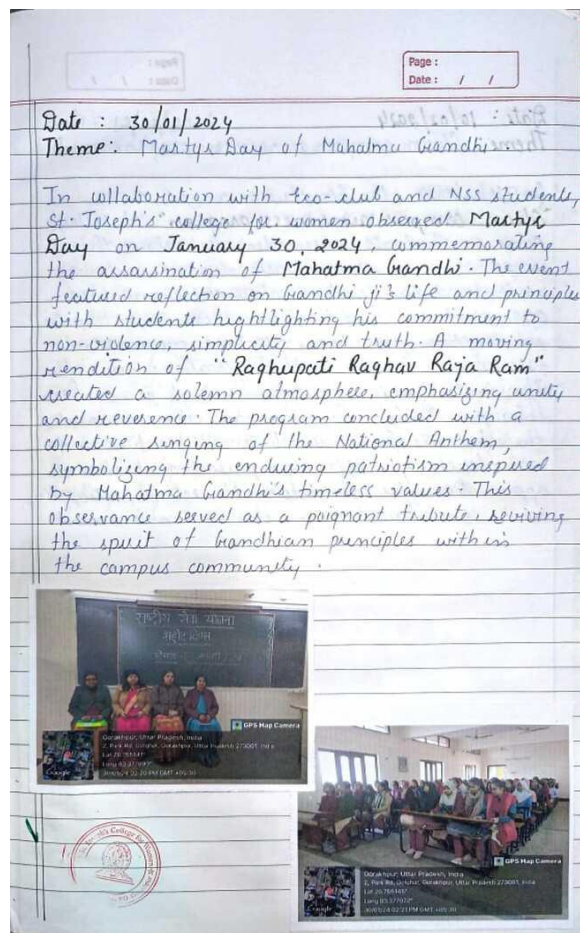 Page :
Date : / /
Date : 30/01/2024
Theme: Martyrs Day of Mahatma Gandhi.
In collaboration with Eco-club and NSS students,
St. Joseph's college for women observed Martyr
Day on January 30, 2024, commemorating
the assassination of Mahatma Gandhi. The event
featured reflection on Gandhi ji's life and principles
with students hightlighting his commitment to
non-violence, simplicity and truth. A moving
rendition of "Raghupati Raghav Raja Ram"
created a solemn atmosphere, emphasizing unity
and reverence. The program concluded with a
collective singing of the National Anthem,
symbolizing the enduring patriotism inspired
by Mahatma Gandhi's timeless values. This
observance served as a poignant tribute, reviving
the spirit of Gandhian principles within
the campus community.
राष्ट्रीय सेवा योजना
शहीद दिवस
GPS Map Camera
Gorakhpur, Uttar Pradesh, India
2, Park Rd, Golghar, Gorakhpur, Uttar Pradesh 273001, India
Lat 26.755141°
30/01/24 02:20 PM GMT +05:30
Google
GPS Map Camera
Gorakhpur, Uttar Pradesh, India
2, Park Rd, Golghar, Gorakhpur, Uttar Pradesh 273001, India
Long 83.377022°
30/01/24 02:21 PM GMT +05:30
Google
St. Joseph's College for Women